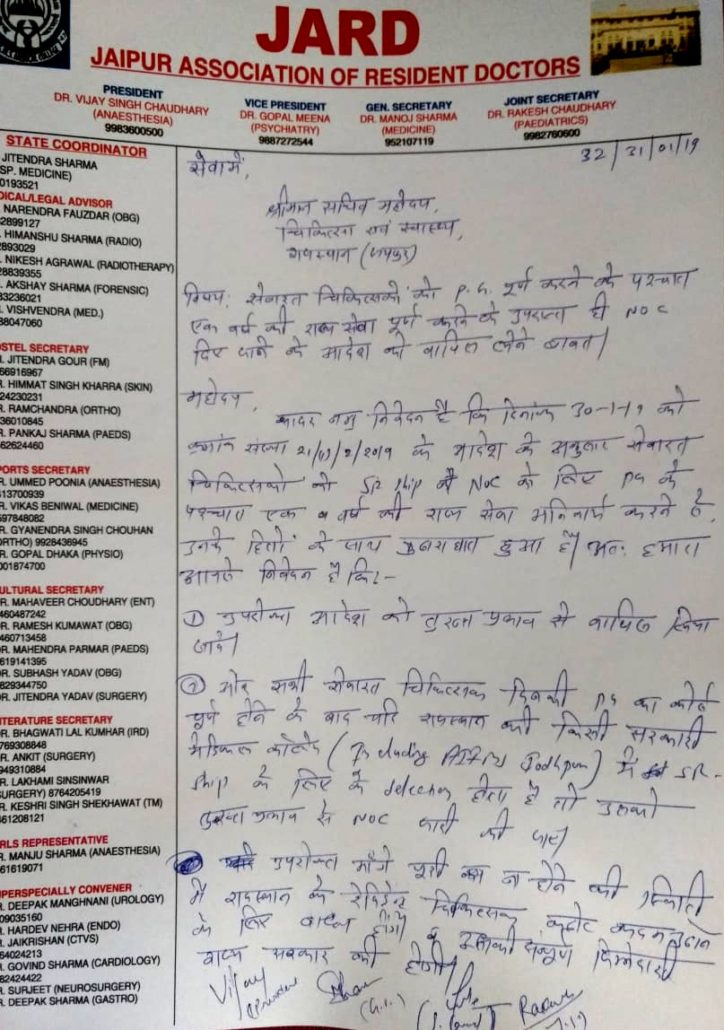 JARD
JAIPUR ASSOCIATION OF RESIDENT DOCTORS
PRESIDENT
DR. VIJAY SINGH CHAUDHARY
(ANAESTHESIA)
9983600500
VICE PRESIDENT
DR. GOPAL MEENA
(PSYCHIATRY)
9887272544
GEN. SECRETARY
DR. MANOJ SHARMA
(MEDICINE)
952107119
JOINT SECRETARY
DR. RAKESH CHAUDHARY
(PAEDIATRICS)
9982760600
STATE COORDINATOR
JITENDRA SHARMA
SP. MEDICINE)
0193521
DICAL/LEGAL ADVISOR
NARENDRA FAUZDAR (OBG)
2899127
HIMANSHU SHARMA (RADIO)
2893029
NIKESH AGRAWAL (RADIOTHERAPY)
28839355
AKSHAY SHARMA (FORENSIC)
33236021
VISHVENDRA (MED.)
38047060
OSTEL SECRETARY
R. JITENDRA GOUR (FM)
66916967
R. HIMMAT SINGH KHARRA (SKIN)
24230231
R. RAMCHANDRA (ORTHO)
36010845
R. PANKAJ SHARMA (PAEDS)
62624460
PORTS SECRETARY
R. UMMED POONIA (ANAESTHESIA)
413700939
R. VIKAS BENIWAL (MEDICINE)
597848082
R. GYANENDRA SINGH CHOUHAN
ORTHO) 9928436945
R. GOPAL DHAKA (PHYSIO)
001674700
ULTURAL SECRETARY
R. MAHAVEER CHOUDHARY (ENT)
460487242
R. RAMESH KUMAWAT (OBG)
460713458
R. MAHENDRA PARMAR (PAEDS)
619141395
R. SUBHASH YADAV (OBG)
829344750
R. JITENDRA YADAV (SURGERY)
ITERATURE SECRETARY
R. BHAGWATI LAL KUMHAR (IRD)
769308848
R. ANKIT (SURGERY)
949310884
R. LAKHAMI SINSINWAR
SURGERY) 8764205419
R. KESHRI SINGH SHEKHAWAT (TM)
461208121
RLS REPRESENTATIVE
R. MANJU SHARMA (ANAESTHESIA)
61619071
UPERSPECIALLY CONVENER
R. DEEPAK MANGHNANI (UROLOGY)
09035160
R. HARDEV NEHRA (ENDO)
R. JAIKRISHAN (CTVS)
64024213
R. GOVIND SHARMA (CARDIOLOGY)
82424422
R. SURJEET (NEUROSURGERY)
R. DEEPAK SHARMA (GASTRO)
32/31/01/19
सेवामें,
श्रीमान सचिव महोदय,
चिकित्सा एवं स्वास्थ्य,
राजस्थान (जयपुर)
विषय: सेवारत चिकित्सकों को P.G. पूर्ण करने के पश्चात
एक वर्ष की राज्य सेवा पूर्ण करने के उपरान्त ही NOC
दिए जाने के आदेश को वापिस लेने बाबत।
महोदय,
सादर नम्र निवेदन है कि दिनांक 30-1-19 को
क्रमांक संख्या के आदेश के अनुसार सेवारत
चिकित्सको को SR ship की NOC के लिए PG के
पश्चात एक वर्ष की राज्य सेवा अनिवार्य करने से,
उनके हितों के साथ कुठाराघात हुआ है। अत: हमारा
आपसे निवेदन है कि:-
① उपरोक्त आदेश को तुरन्त प्रभाव से वापिस लिया
जावे।
② और सभी सेवारत चिकित्सक जिनकी PG का कोर्स
पूर्ण होने के बाद यदि राजस्थान की किसी सरकारी
मेडिकल कॉलेज (Including AIIMS Jodhpur) में SR-
ship के लिए selection होता है तो उसको
तुरन्त प्रभाव से NOC जारी की जाए।
उपरोक्त माँगे पूरी ना होने की स्थिति
में राजस्थान के रेजिडेन्ट चिकित्सक कठोर कदम उठाने
के लिए बाध्य होंगे व इसकी संपूर्ण जिम्मेदारी
राज्य सरकार की होगी।
Vijay